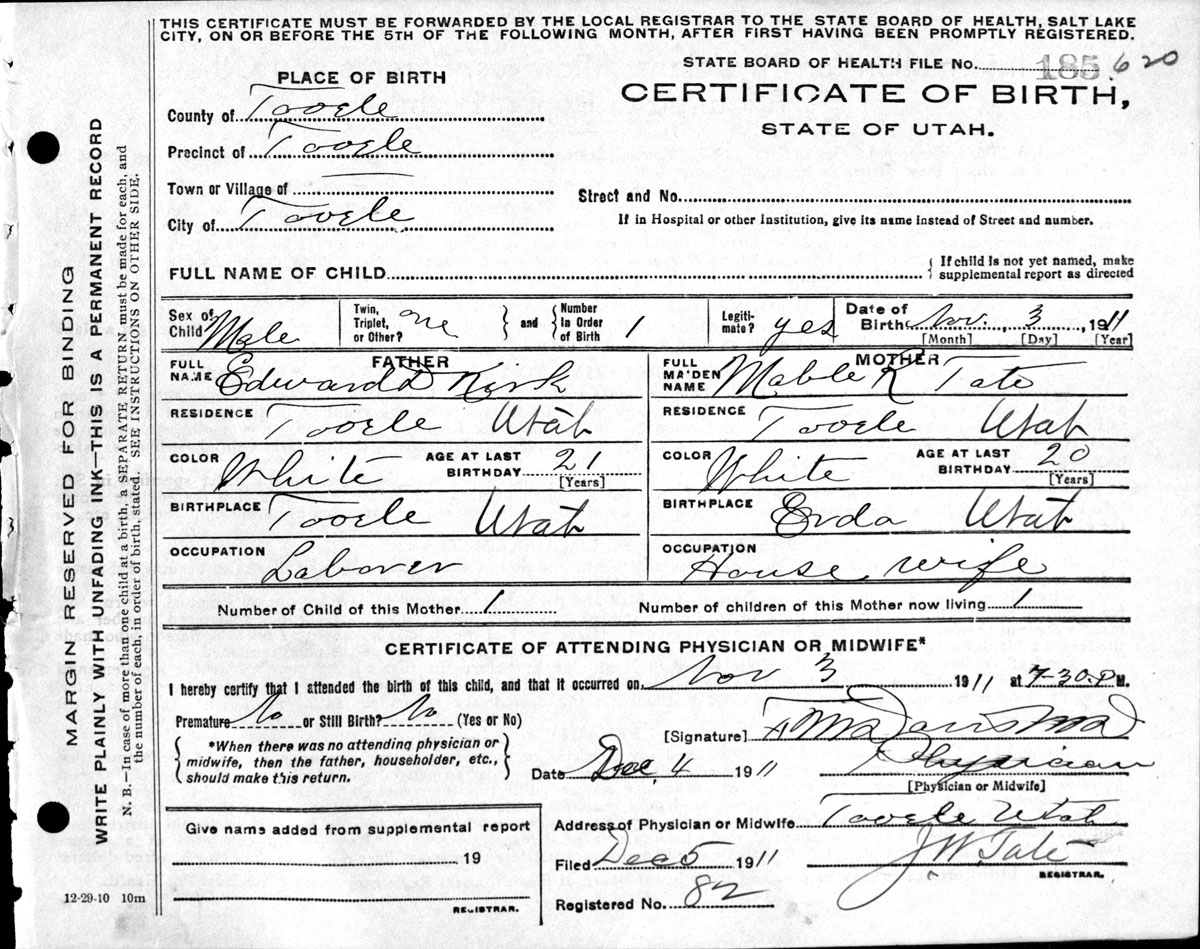 THIS CERTIFICATE MUST BE FORWARDED BY THE LOCAL REGISTRAR TO THE STATE BOARD OF HEALTH, SALT LAKE
CITY, ON OR BEFORE THE 5TH OF THE FOLLOWING MONTH, AFTER FIRST HAVING BEEN PROMPTLY REGISTERED.
STATE BOARD OF HEALTH FILE No. 185 620
PLACE OF BIRTH
CERTIFICATE OF BIRTH,
STATE OF UTAH.
County of Tooele
Precinct of Tooele
Town or Village of
Street and No.
City of Tooele
If in Hospital or other Institution, give its name instead of Street and number.
FULL NAME OF CHILD
{ If child is not yet named, make
supplemental report as directed
Sex of Child Male
Twin, Triplet, or Other? One } and { Number In Order of Birth 1
Legiti-mate? yes
Date of Birth Nov. 3, 1911
[Month] [Day] [Year]
FATHER
FULL NAME Edward D Kirk
MOTHER
FULL MAIDEN NAME Mable R Tate
RESIDENCE Tooele Utah
RESIDENCE Tooele Utah
COLOR White AGE AT LAST BIRTHDAY 21 [Years]
COLOR White AGE AT LAST BIRTHDAY 20 [Years]
BIRTHPLACE Tooele Utah
BIRTHPLACE Erda Utah
OCCUPATION Laborer
OCCUPATION House wife
Number of Child of this Mother 1 Number of children of this Mother now living 1
CERTIFICATE OF ATTENDING PHYSICIAN OR MIDWIFE*
I hereby certify that I attended the birth of this child, and that it occurred on Nov 3 1911 at 7-30 P M.
Premature No or Still Birth? No (Yes or No)
[Signature] Davis MD
{ *When there was no attending physician or
midwife, then the father, householder, etc.,
should make this return. }
Date Dec 4 1911 Physician
[Physician or Midwife]
Give name added from supplemental report
19
REGISTRAR.
Address of Physician or Midwife Tooele Utah
Filed Dec 5 1911 J W Tate
REGISTRAR.
Registered No. 82
12-29-10 10m
MARGIN RESERVED FOR BINDING
WRITE PLAINLY WITH UNFADING INK—THIS IS A PERMANENT RECORD
N. B.—In case of more than one child at a birth, a SEPARATE RETURN must be made for each, and
the number of each, in order of birth, stated. SEE INSTRUCTIONS ON OTHER SIDE.